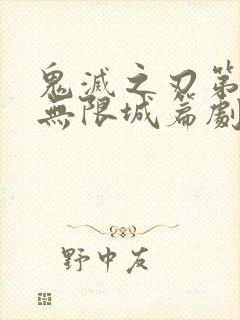 鬼滅之刃第
無限城篇劇
野中友